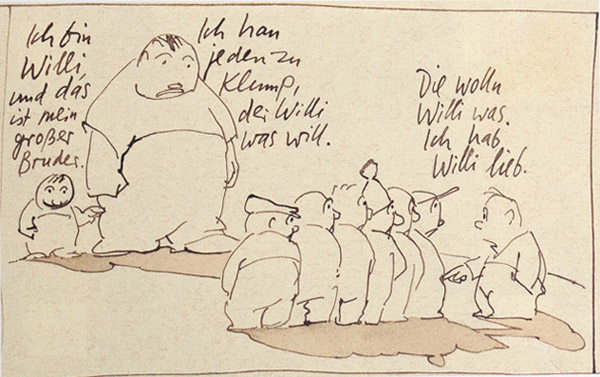 Ich bin
Willi,
und das
ist mein
großer
Bruder.
Ich hau
jeden zu
Klump,
der Willi
was will.
Die wolln
Willi was.
Ich hab
Willi lieb.